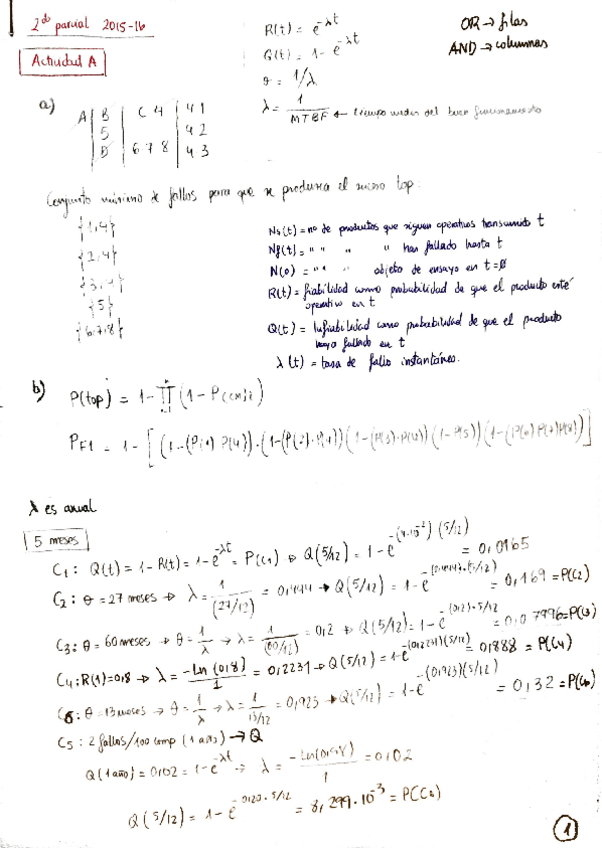 2do parcial 2015-16
Actividad A
R(t) = e^-λt
Q(t) = 1 - e^-λt
θ = 1/λ
λ = 1/MTBF ← tiempo medio del buen funcionamiento
OR → filas
AND → columnas
a)
A | B | C 4 | 4 1
5 | 4 2
D | 6 7 8 | 4 3
Conjunto mínimo de fallos para que se produzca el suceso top:
{1,4}
{2,4}
{3,4}
{5}
{6,7,8}
Ns(t) = no de productos que siguen operativos transcurrido t
Nf(t) = " " " " han fallado hasta t
N(0) = " " " objeto de ensayo en t=0
R(t) = fiabilidad como probabilidad de que el producto esté
operativo en t
Q(t) = Infiabilidad como probabilidad de que el producto
haya fallado en t
λ(t) = tasa de fallo instantáneo.
b) P(top) = 1 - ∏ (1 - P(cm)i)
PF1 = 1 - [(1-(P(1)·P(4))·(1-(P(2)·P(4))(1-(P(3)·P(4))(1-P(5))(1-(P(6)P(7)P(8))]
λ es anual
5 meses
C1: Q(t) = 1 - R(t) = 1 - e^-λt = P(C1) → Q(5/12) = 1 - e^-(4·10^-2)(5/12) = 0,0165
C2: θ = 27 meses → λ = 1/(27/12) = 0,444 → Q(5/12) = 1 - e^-(0,444)·(5/12) = 0,169 = P(C2)
C3: θ = 60 meses → θ = 1/λ → λ = 1/(60/12) = 0,2 → Q(5/12) = 1 - e^-(0,2)·5/12 = 0,07996 = P(C3)
C4: R(1) = 0,8 → λ = -Ln(0,8)/1 = 0,2231 → Q(5/12) = 1 - e^-(0,2231)(5/12) = 0,888 = P(C4)
C6: θ = 13 meses → θ = 1/λ → λ = 1/13/12 = 0,923 → Q(5/12) = 1 - e^-(0,923)(5/12) = 0,32 = P(C6)
C5: 2 fallos/100 comp (1 año) → Q
Q(1 año) = 0,02 = 1 - e^-λt → λ = -Ln(0,98)/1 = 0,02
Q(5/12) = 1 - e^-0,020·5/12 = 8,299·10^-3 = P(C5)
1